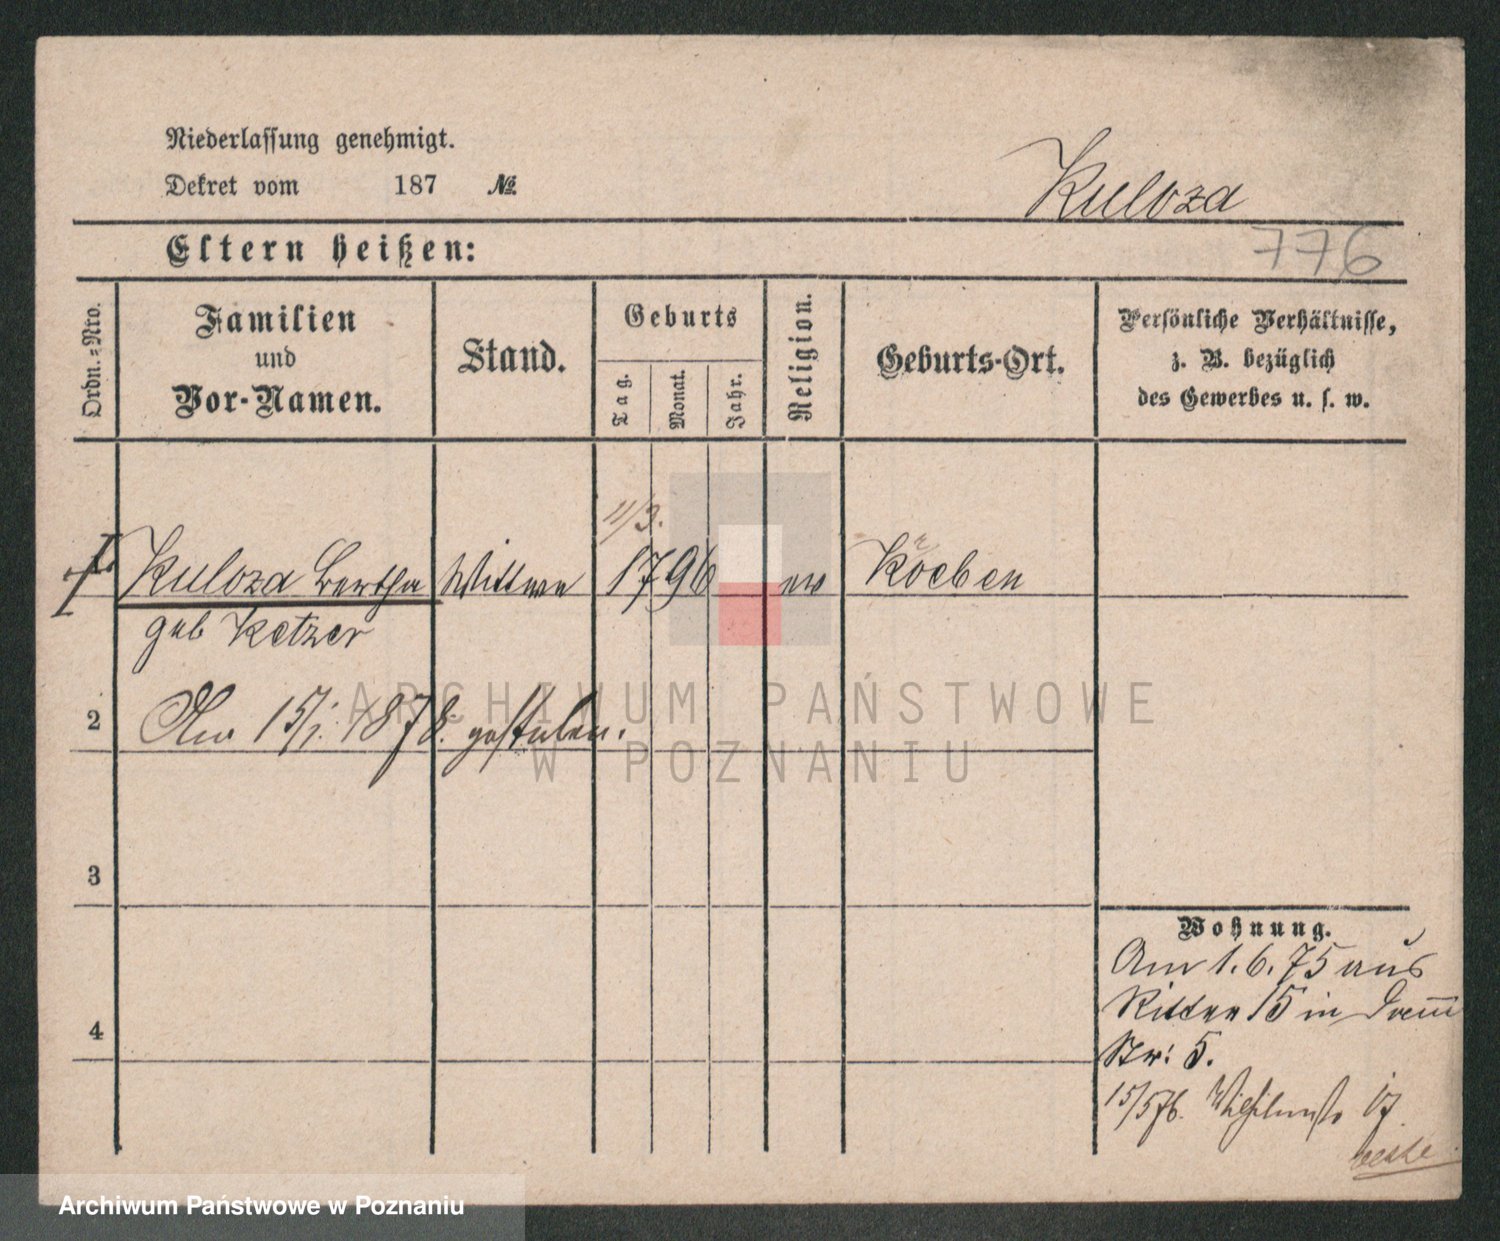 Niederlassung genehmigt.
Dekret vom 187 №
Kuloza
Eltern heißen:
776
Ordn.-Nro.
Familien
und
Vor-Namen.
Stand.
Geburts
Tag.
Monat.
Jahr.
Religion.
Geburts-Ort.
Persönliche Verhältnisse,
z. B. bezüglich
des Gewerbes u. s. w.
11/3.
Kuloza Bertha Wittwe 1796 ev Koeben
geb Ketzer
2 Am 15/1. 1878. gestorben.
ARCHIWUM PAŃSTWOWE
W POZNANIU
3
Wohnung.
Am 1. 6. 75 aus
Ritter 15 in
4
Str: 5.
15/5 76. 17
Archiwum Państwowe w Poznaniu